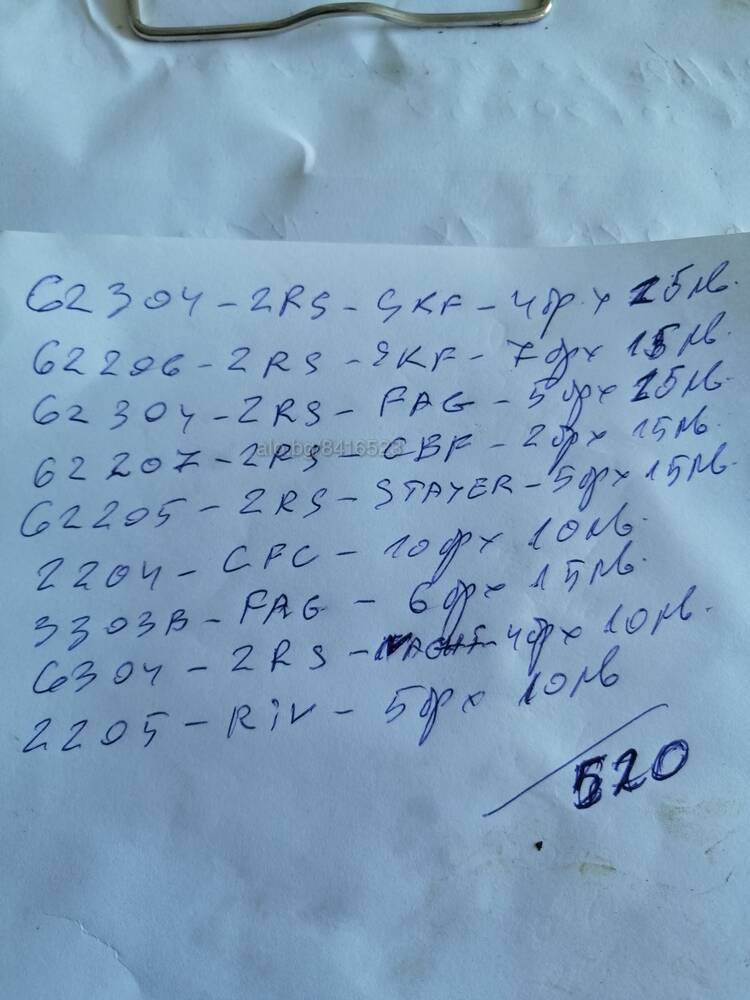 62304-2RS-SKF-4бр х 15лв.
62206-2RS-SKF-7бр х 15лв.
62304-2RS-FAG-5бр х 15лв.
62207-2RS-CBF-2бр х 15лв.
62205-2RS-STAYER-5бр х 15лв.
2204-CFC-10бр х 10лв.
3303B-FAG-6бр х 15лв.
6304-2RS- 4бр х 10лв.
2205-RIV-5бр х 10лв
520